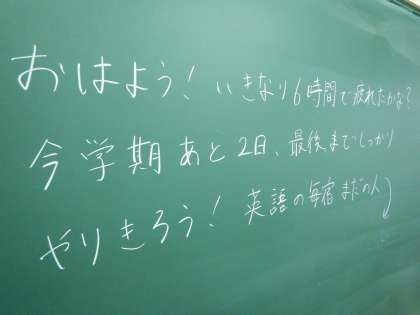 おはよう！いきなり6時間で疲れたかな？
今学期あと2日、最後までしっかり
やりきろう！英語の毎宿まだの人